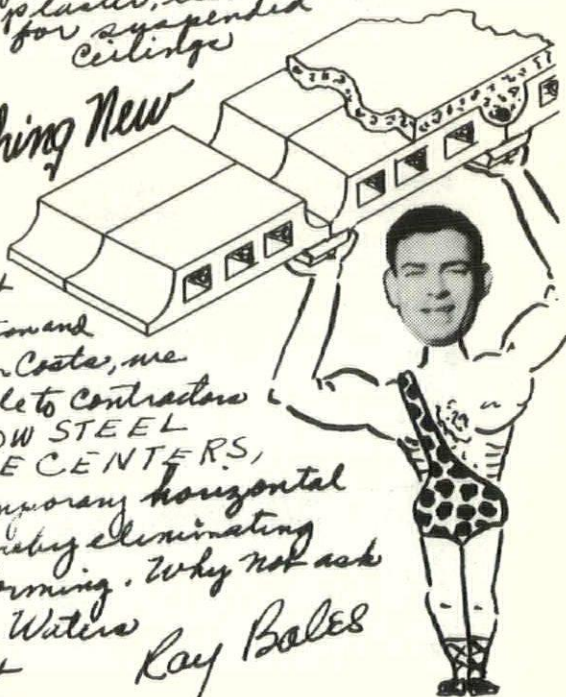 plaster,
for suspended
ceilings
hing New
on and
Costs, we
le to contractors
OW STEEL
E CENTERS,
mporary horizontal
reby eliminating
orming. Why not ask
Waters
Ray Bales